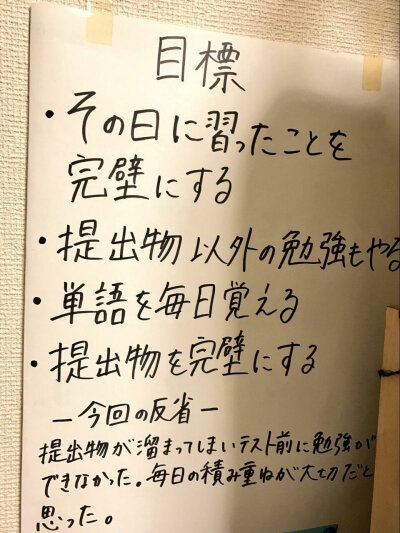 目標
・その日に習ったことを
完璧にする
・提出物以外の勉強もやる
・単語を毎日覚える
・提出物を完璧にする
ー今回の反省ー
提出物が溜まってしまいテスト前に勉強が
できなかった。毎日の積み重ねが大切だと
思った。